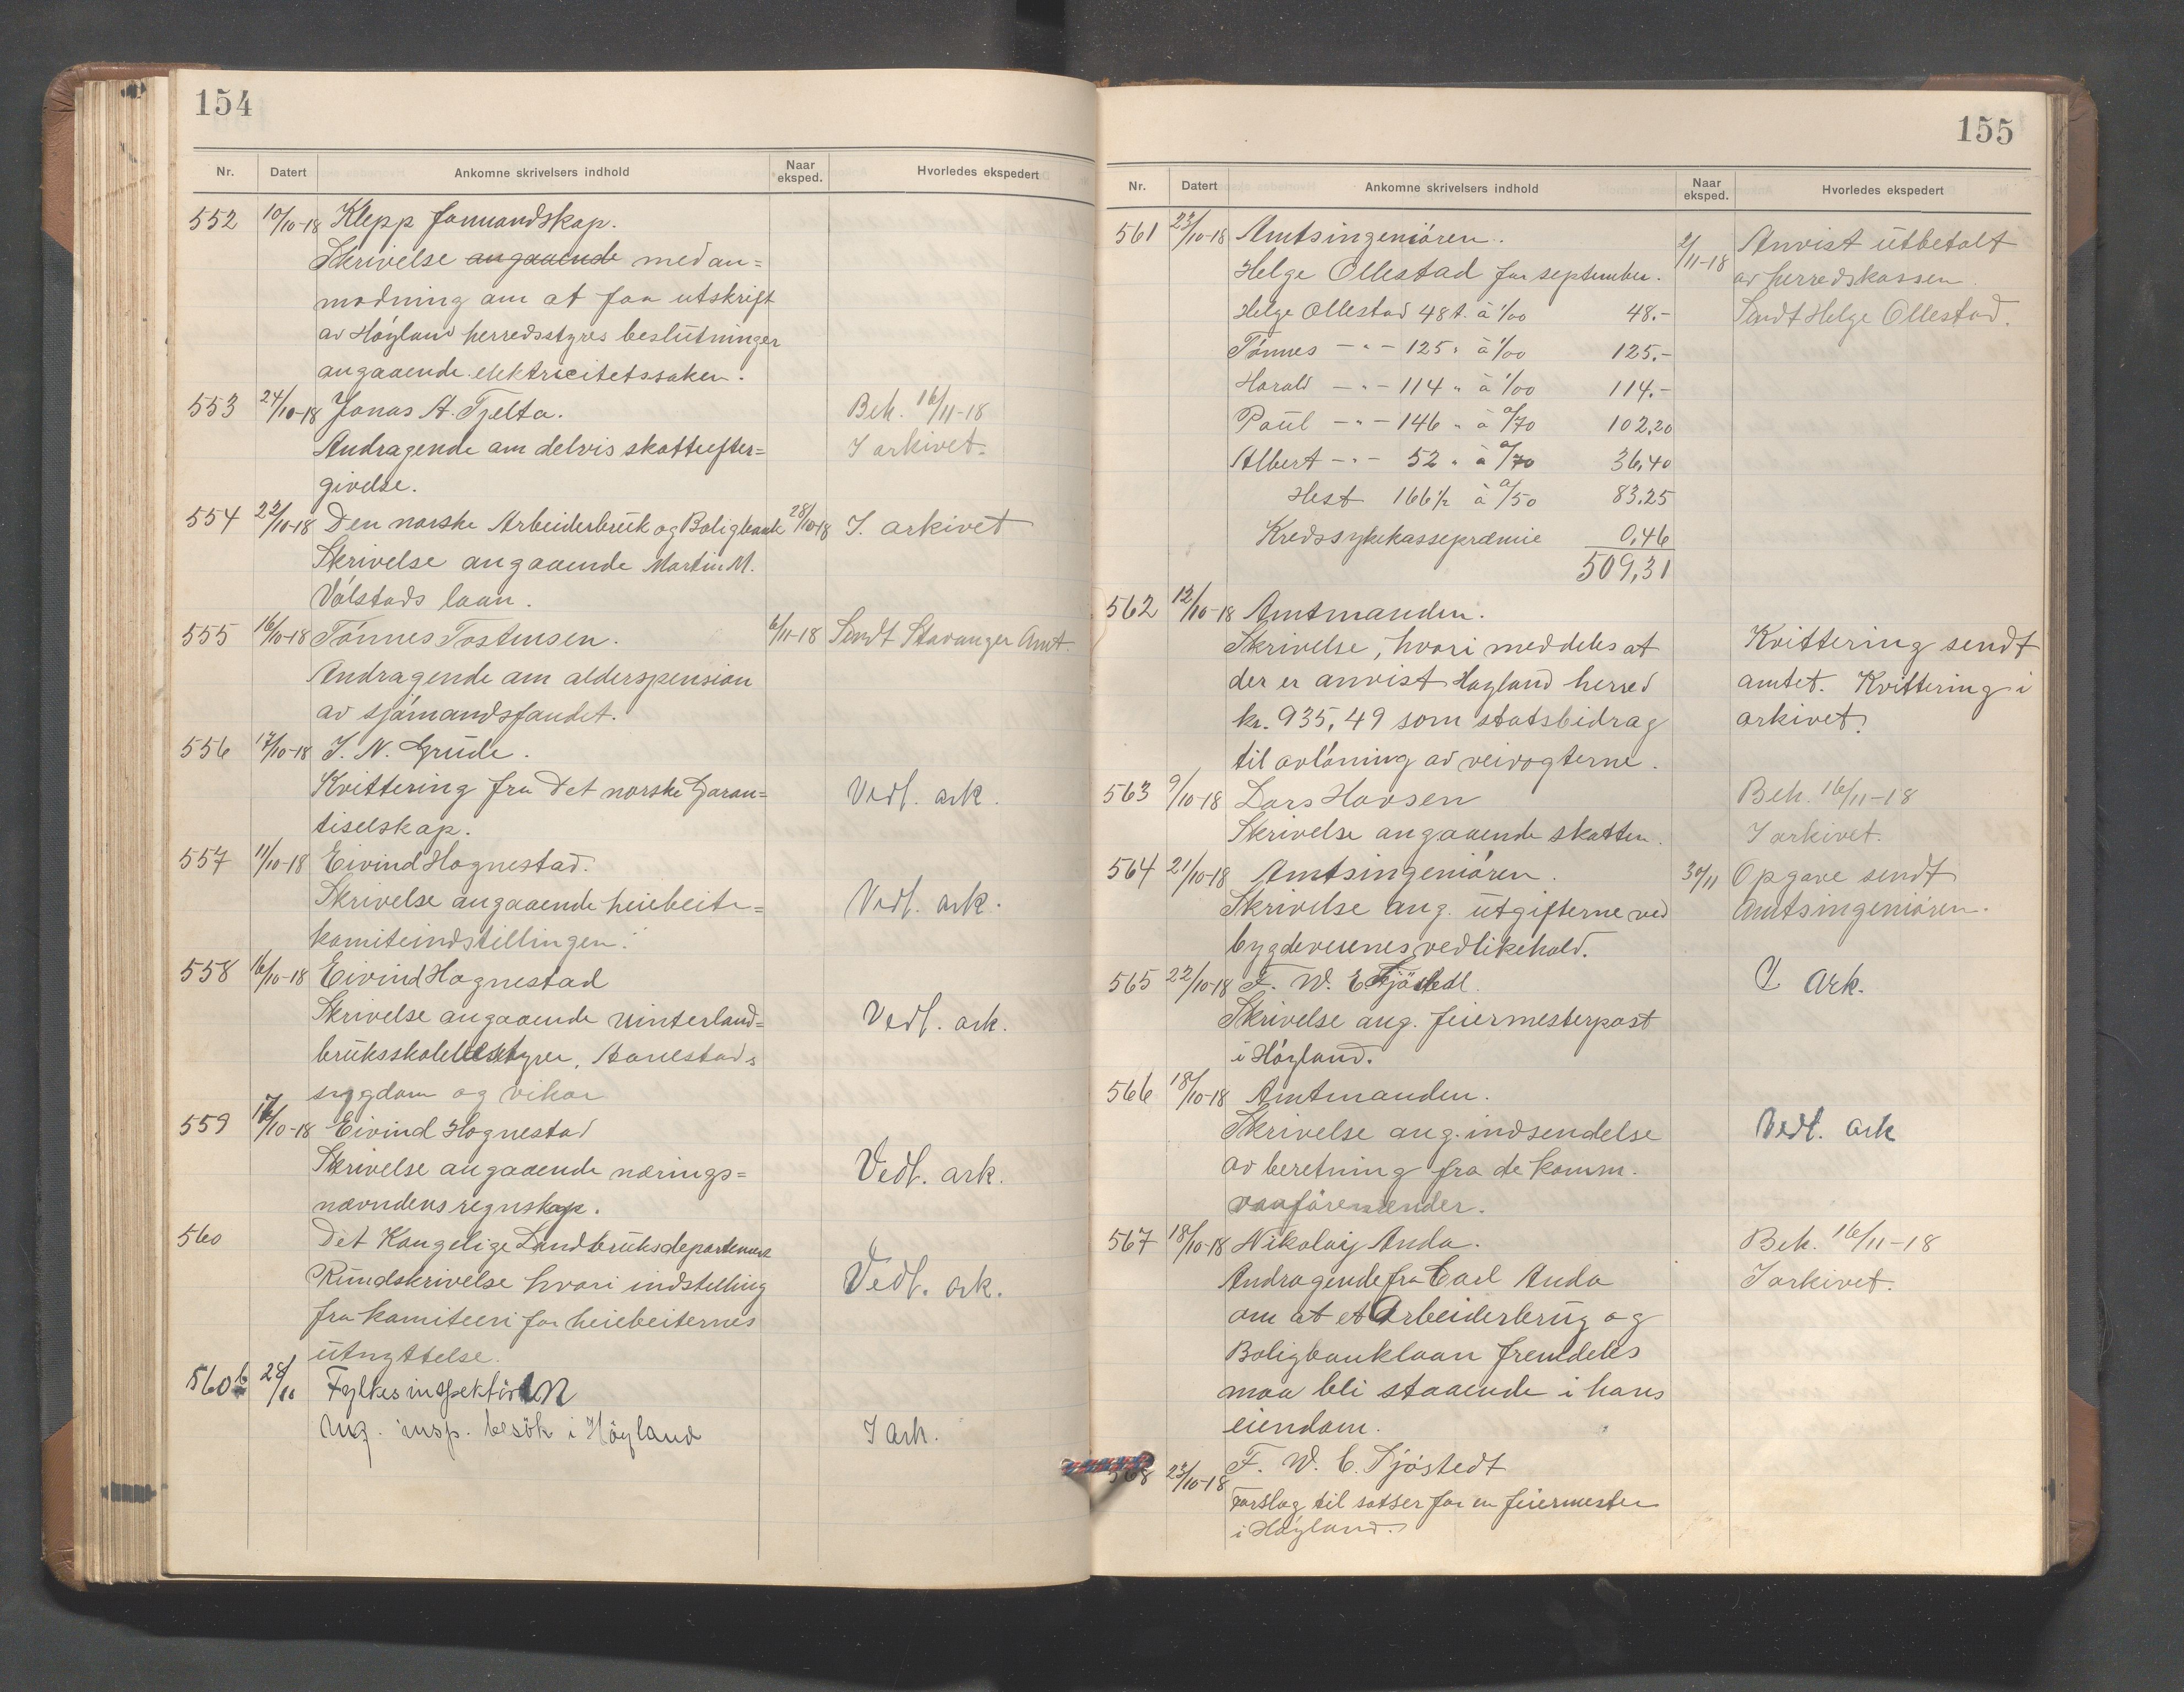 154
Nr. Datert Ankomne skrivelsers indhold Naar eksped. Hvorledes ekspedert
552 10/10-18 Klepp formandskap.
Skrivelse angaaende med an=
modning om at faa utskrift
av Høyland herredsstyres beslutninger
angaaende elektricitetssaken.
553 24/10-18 Jonas A. Tjelta. Beh. 16/11-18
Andragende om delvis skatteefter= I arkivet.
givelse.
554 22/10-18 Den norske Arbeiderbruk og Boligbank 28/10-18 I. arkivet
Skrivelse angaaende Martin M.
Vølstads laan.
555 16/10-18 Tønnes Tostensen. 6/11-18 Sendt Stavanger Amt.
Andragende om alderspension
av sjømandsfondet.
556 17/10-18 J. N. Grude.
Kvittering fra Det norske Garan= Vedl. ark.
tiselskap.
557 11/10-18 Eivind Hognestad.
Skrivelse angaaende heiebeite= Vedl. ark.
komiteindstillingen.
558 16/10-18 Eivind Hognestad
Skrivelse angaaende vinterland= Vedl. ark.
bruksskolebestyrer, Aanestads
sygdom og vikar
559 17/10-18 Eivind Hognestad
Skrivelse angaaende nærings= Vedl. ark.
nævndens regnskap.
560 Det Kongelige Landbruksdepartement
Rundskrivelse hvori indstilling Vedl. ark.
fra komiteen for heiebeiternes
utnyttelse.
560b 28/10 Fylkesinspektøren
Ang. insp. besøk i Høyland I ark.
155
Nr. Datert Ankomne skrivelsers indhold Naar eksped. Hvorledes ekspedert
561 23/10-18 Amtsingeniøren. 2/11-18 Anvist utbetalt
Helge Ollestad for september. av herredskassen.
Helge Ollestad 48 t. à 1/00 48.- Sendt Helge Ollestad.
Tønnes -"- 125 " à 1/00 125.-
Harald -"- 114 " à 1/00 114.-
Paul -"- 146 " à 0/70 102,20
Albert -"- 52 " à 0/70 36,40
Hest 166½ à 0/50 83,25
Kredssykekassepræmie 0,46
509,31
562 12/10-18 Amtmanden.
Skrivelse, hvori meddeles at Kvittering sendt
der er anvist Høyland herred amtet. Kvittering i
kr. 935,49 som statsbidrag arkivet.
til avløning av veivogterne.
563 9/10-18 Lars Hansen Beh. 16/11-18
Skrivelse angaaende skatten. I arkivet.
564 21/10-18 Amtsingeniøren. 30/11 Opgave sendt
Skrivelse ang. utgifterne ved Amtsingeniøren.
bygdeveienes vedlikehold.
565 22/10-18 F. W. E Tjöstedt. I Ark.
Skrivelse ang. feiermesterpost
i Høyland.
566 18/10-18 Amtmanden.
Skrivelse ang. indsendelse Vedl. ark
av beretning fra de komm.
vanføremænder.
567 18/10-18 Nikolaij Anda. Beh. 16/11-18
Andragende fra Carl Anda I arkivet.
om at et Arbeiderbrug og
Boligbanklaan fremdeles
maa bli staaende i hans
eiendom.
568 23/10-18 F. W. C. Tjøstedt
Forslag til satser for en feiermester
i Høyland.